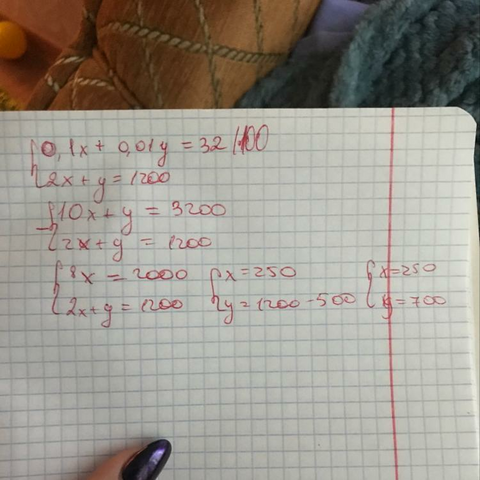 0,1x + 0,01y = 32 | 100
2x + y = 1200
10x + y = 3200
2x + y = 1200
8x = 2000 x = 250 x = 250
2x + y = 1200 y = 1200 - 500 y = 700